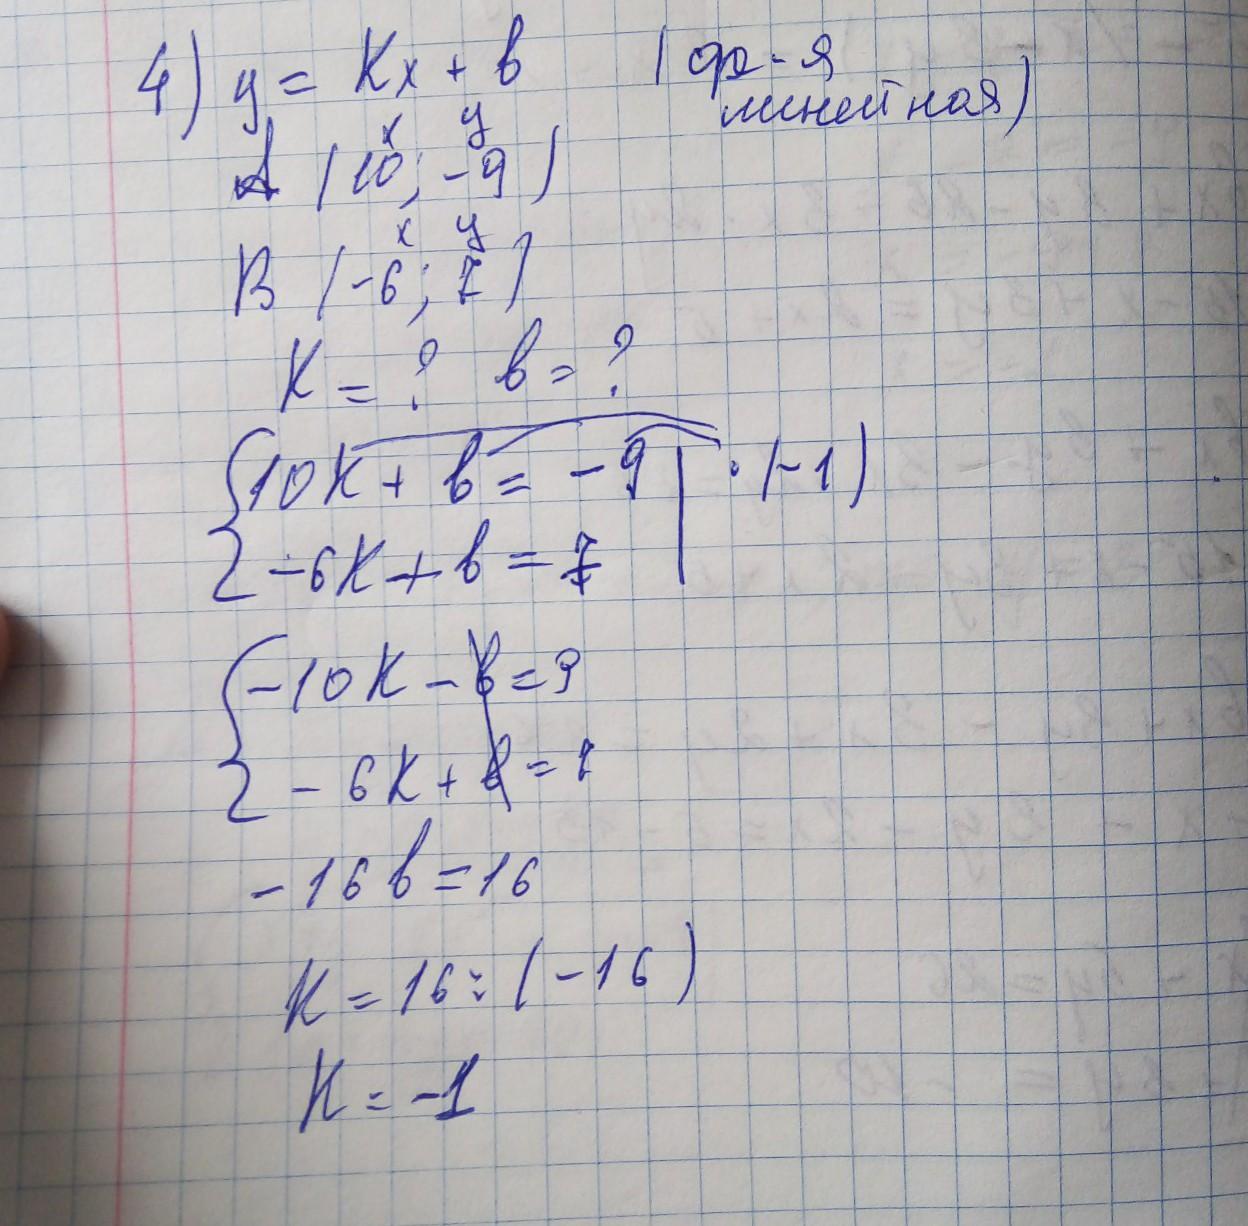 4) y = Kx + b (ф-я
линейная)
x y
A (10; -9)
x y
B (-6; 7)
K = ? b = ?
{10K + b = -9 | · (-1)
{-6K + b = 7
{-10K - b = 9
{-6K + b = 7
-16b = 16
K = 16 : (-16)
K = -1